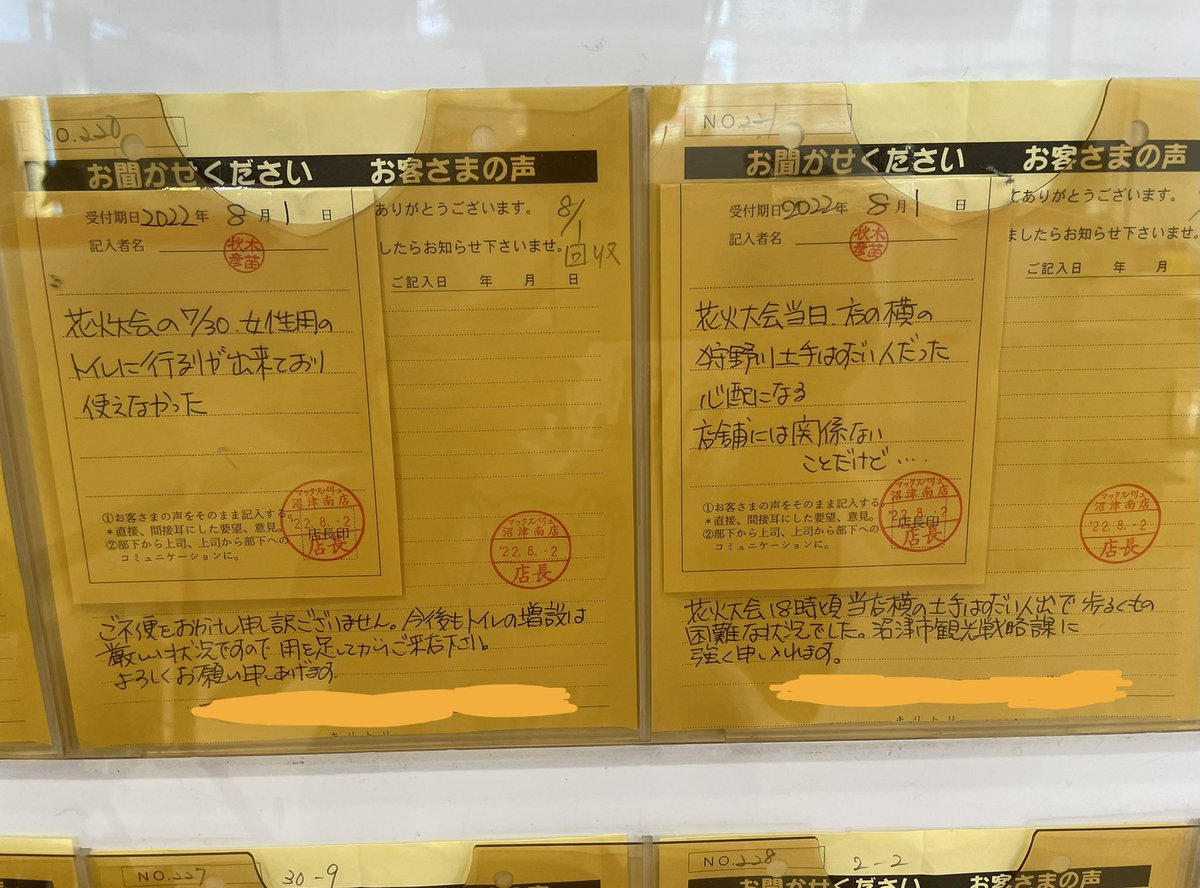 NO.220
お聞かせください お客さまの声
受付期日 2022年 8月 1日
記入者名 秋木彦苗
ありがとうございます。
したらお知らせ下さいませ。
8/1
回収
ご記入日 年 月 日
花火大会の7/30 女性用の
トイレに行列が出来ており
使えなかった
①お客さまの声をそのまま記入する。
*直接、間接耳にした要望、意見。
②部下から上司、上司から部下への
コミュニケーションに。
マックスバリュ
沼津南店
'22.8.-2
店長印
店長
マックスバリュ
沼津南店
'22.8.-2
店長
ご不便をおかけし申訳ございません。今後もトイレの増設は
厳しい状況ですので 用を足してからご来店下さい。
よろしくお願い申しあげます。
キリトリ
NO.221
お聞かせください お客さまの声
受付期日 2022年 8月 1日
記入者名 秋木彦苗
てありがとうございます。
ましたらお知らせ下さいませ。
ご記入日 年 月
花火大会当日 店の横の
狩野川土手はすごい人だった
心配になる
店舗には関係ない
ことだけど‥‥
①お客さまの声をそのまま記入する。
*直接、間接耳にした要望、意見。
②部下から上司、上司から部下への
コミュニケーションに。
マックスバリュ
沼津南店
'22.8.-2
店長印
店長
マックスバリュ
沼津南店
'22.8.-2
店長
花火大会 18時頃 当店横の土手はすごい人出で 歩くもの
困難な状況でした。沼津市観光戦略課に
強く申し入れます。
キリトリ
NO.227
30-9
NO.228
2-2
お聞かせください お客さまの声